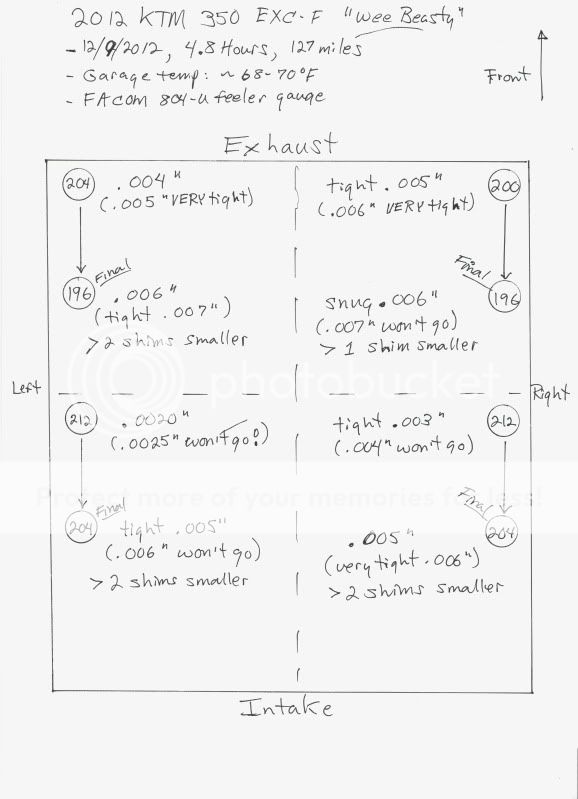 2012 KTM 350 EXC-F "Wee Beasty"
- 12/9/2012, 4.8 Hours, 127 miles
- Garage temp: ~ 68-70°F
- FAcom 804-u feeler gauge
Front
Exhaust
204 .004"
(.005" VERY tight)
Final
196 .006"
(tight .007")
> 2 shims smaller
tight .005" 200
(.006" VERY tight)
Final
snug .006" 196
(.007" won't go)
> 1 shim smaller
Left
Right
photobucket
212 .0020"
(.0025" won't go!)
Final
204 tight .005"
(.006" won't go)
> 2 shims smaller
tight .003" 212
(.004" won't go)
Final
.005" 204
(very tight .006")
> 2 shims smaller
Protect more of your memories for less!
Intake